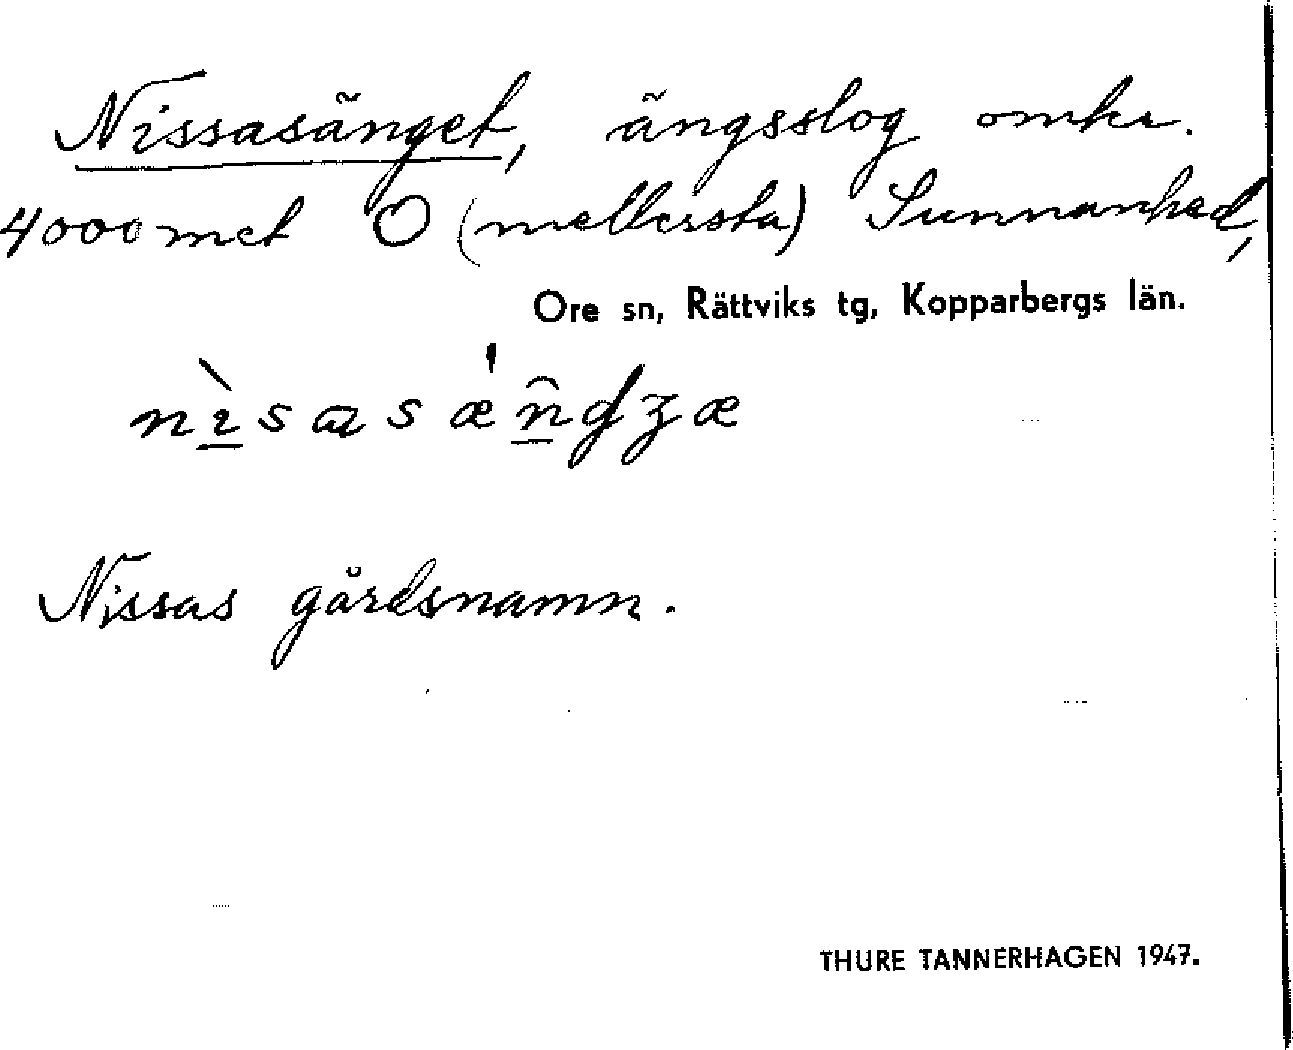 Nissasänget, ängsslog omkr.
4000 met O (mellersta) Sunnanhed,
Ore sn, Rättviks tg, Kopparbergs län.
Nissas gårdsnamn.
THURE TANNERHAGEN 1947.